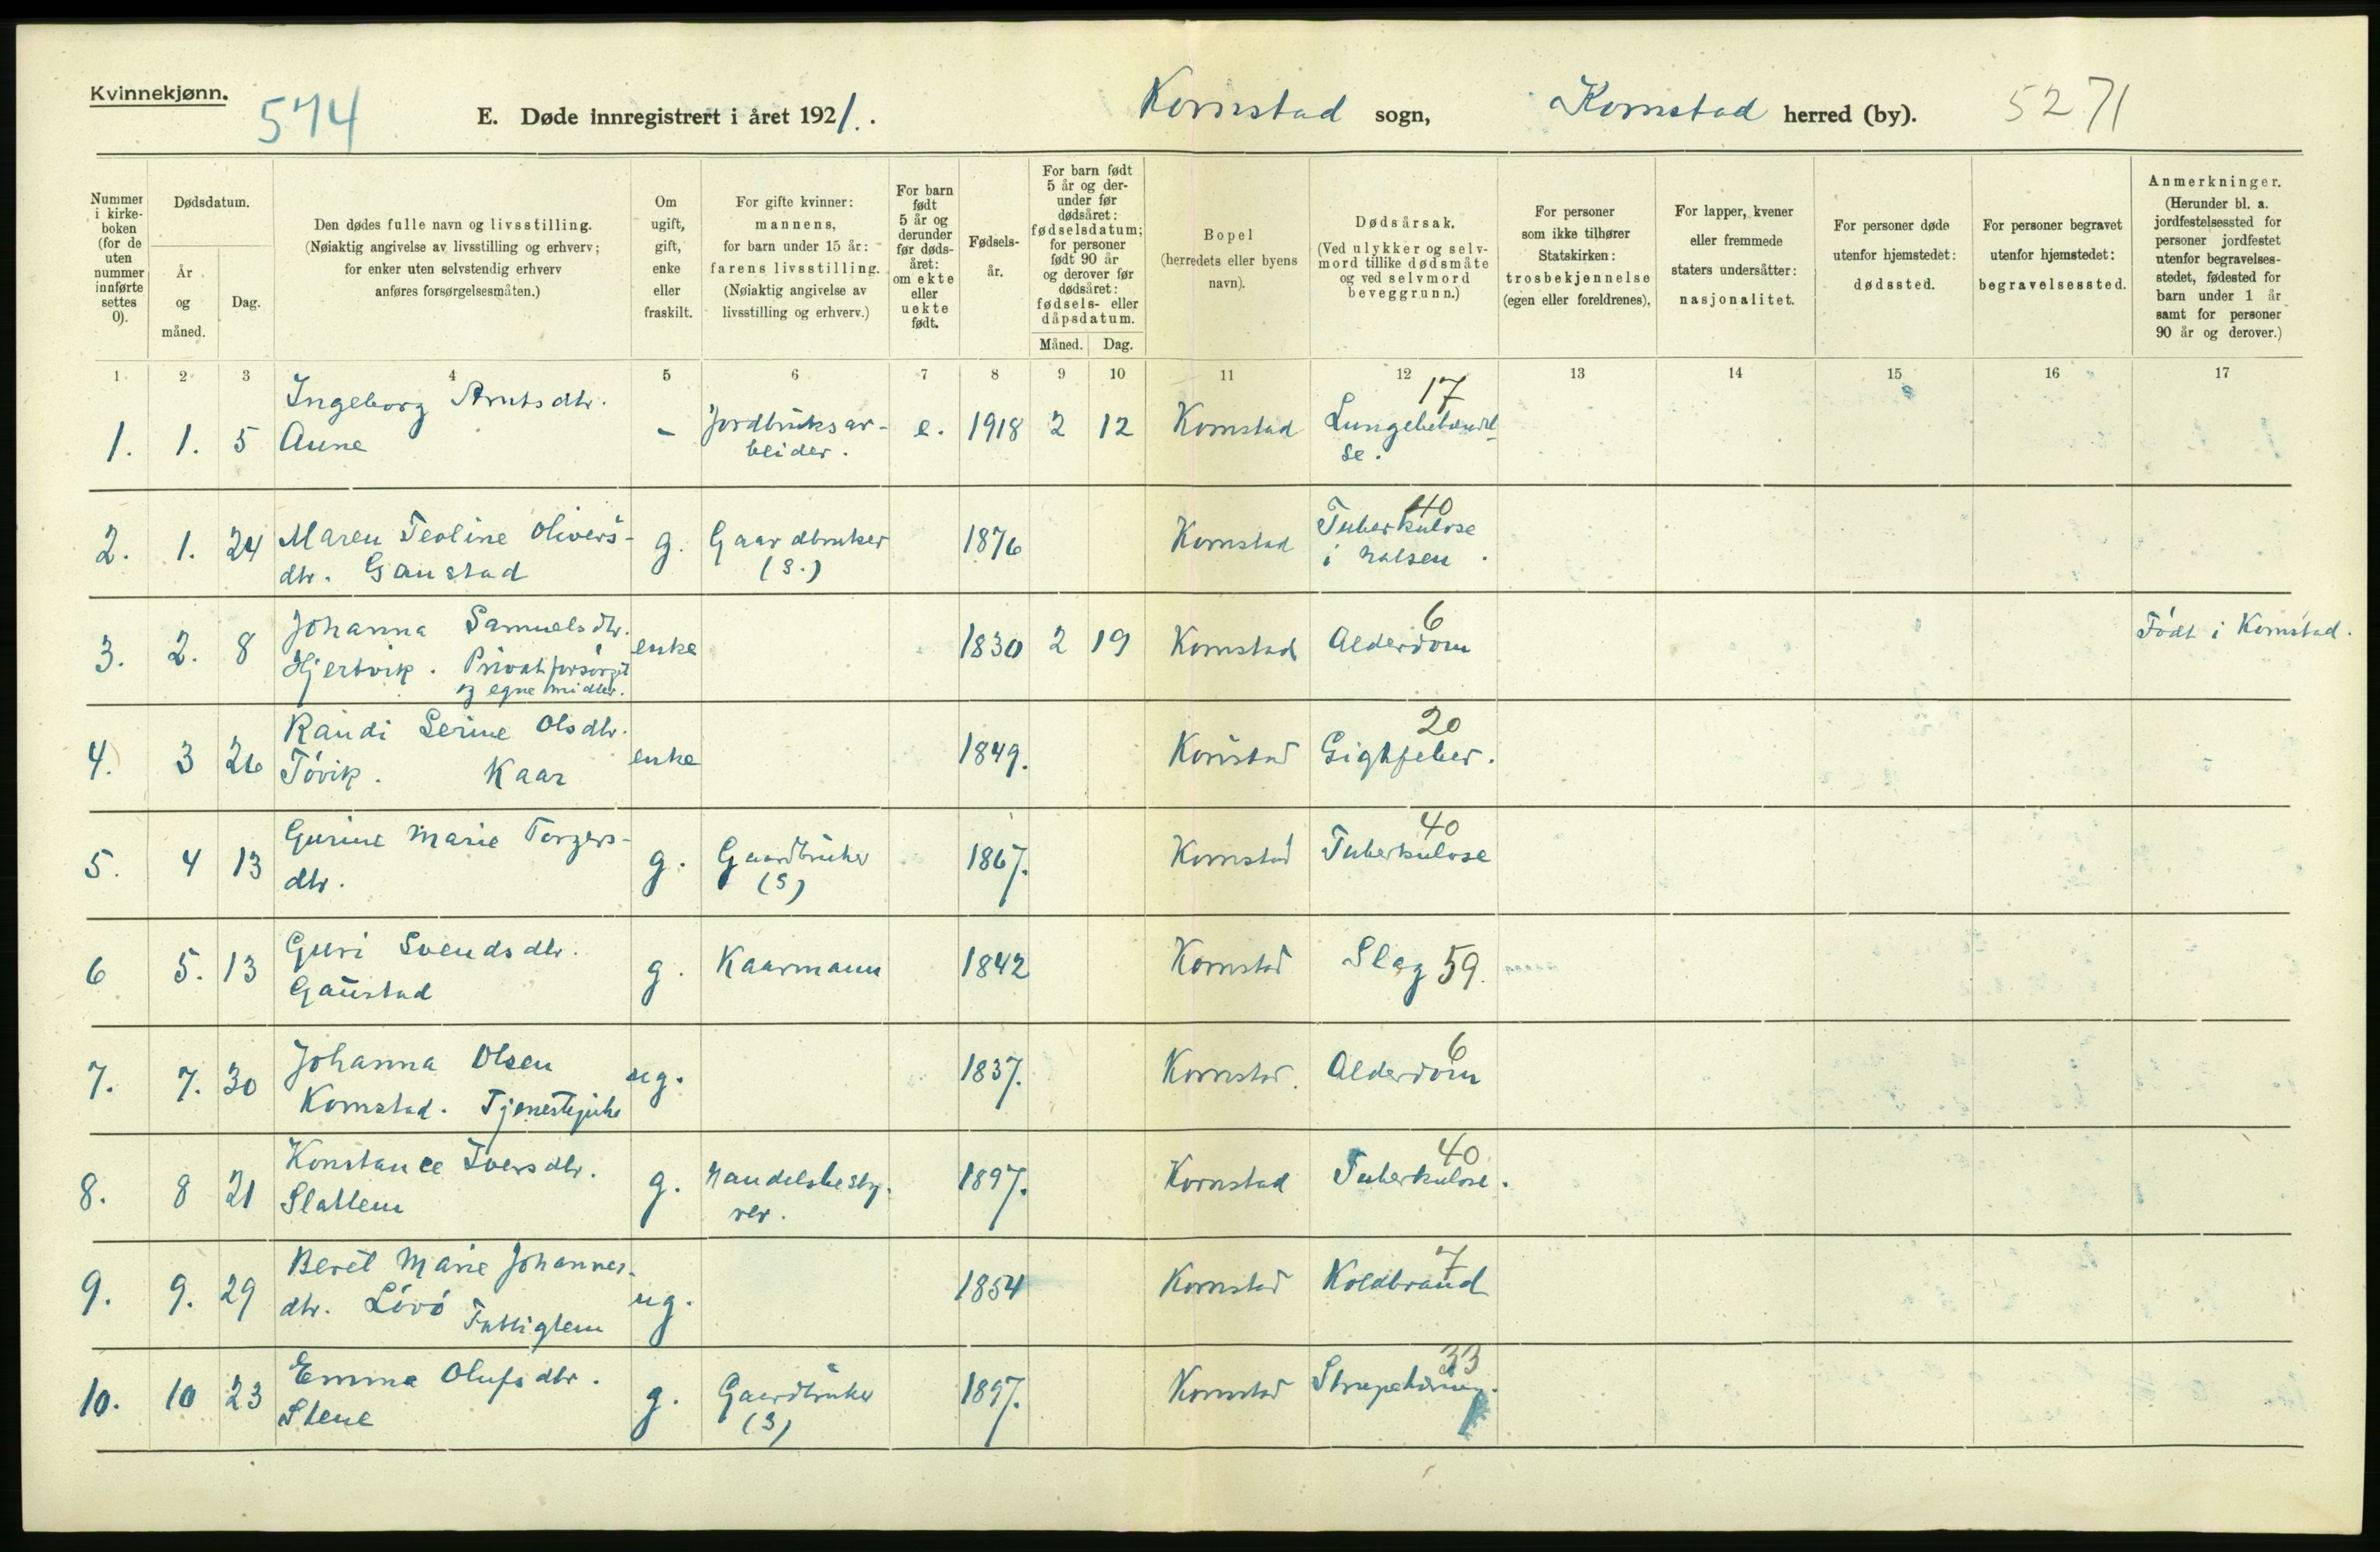 Kvinnekjønn.
574
E. Døde innregistrert i året 1921. .
Kornstad sogn, Kornstad herred (by).
5271
Nummer i kirke-boken (for de uten nummer innførte settes 0).
Dødsdatum.
År og måned.
Dag.
Den dødes fulle navn og livsstilling.
(Nøiaktig angivelse av livsstilling og erhverv;
for enker uten selvstendig erhverv
anføres forsørgelsesmåten.)
Om ugift, gift, enke eller fraskilt.
For gifte kvinner:
mannens,
for barn under 15 år:
farens livsstilling.
(Nøiaktig angivelse av
livsstilling og erhverv.)
For barn født 5 år og derunder før døds-året: om ekte eller uekte født.
Fødsels-år.
For barn født 5 år og der-under før dødsåret: fødselsdatum; for personer født 90 år og derover før dødsåret: fødsels- eller dåpsdatum.
Måned. Dag.
Bopel
(herredets eller byens
navn).
Dødsårsak.
(Ved ulykker og selv-
mord tillike dødsmåte
og ved selvmord
beveggrunn.)
For personer
som ikke tilhører
Statskirken:
trosbekjennelse
(egen eller foreldrenes).
For lapper, kvener
eller fremmede
staters undersåtter:
nasjonalitet.
For personer døde
utenfor hjemstedet:
dødssted.
For personer begravet
utenfor hjemstedet:
begravelsessted.
Anmerkninger.
(Herunder bl. a.
jordfestelsessted for
personer jordfestet
utenfor begravelses-
stedet, fødested for
barn under 1 år
samt for personer
90 år og derover.)
1 2 3 4 5 6 7 8 9 10 11 12 13 14 15 16 17
1. 1. 5 Ingeborg Arntsdtr. Aune - Jordbruksar-beider. e. 1918 2 12 Kornstad Lungebetændelse. 17
2. 1. 24 Maren Teoline Olivers-dtr. Gaustad g. Gaardbruker (S.) 1876 Kornstad Tuberkulose i halsen. 40
3. 2. 8 Johanna Samuelsdtr. Hjertvik. Privat forsørget og egne midler. enke 1830 2 19 Kornstad Alderdom 6 Født i Kornstad.
4. 3 26 Randi Serine Olsdtr. Tøvik. Kaar enke 1849. Kornstad Gigtfeber. 20
5. 4 13 Gurine Marie Torgers-dtr. g. Gaardbruker (S) 1867. Kornstad Tuberkulose 40
6 5. 13 Guri Svendsdtr. Gaustad g. Kaarmann 1842 Kornstad Slag 59.
7. 7. 30 Johanna Olsen Kornstad. Tjenestepike ug. 1837. Kornstad. Alderdom 6
8. 8 21 Konstance Iversdtr. Slattem g. Handelsbesty-rer. 1897. Kornstad Tuberkulose. 40
9. 9. 29 Beret Marie Johannes-dtr. Løvø Fattiglem ug. 1854 Kornstad Koldbrand 7
10. 10 23 Emma Olufsdtr. Stene g. Gaardbruker (S) 1897. Kornstad 33